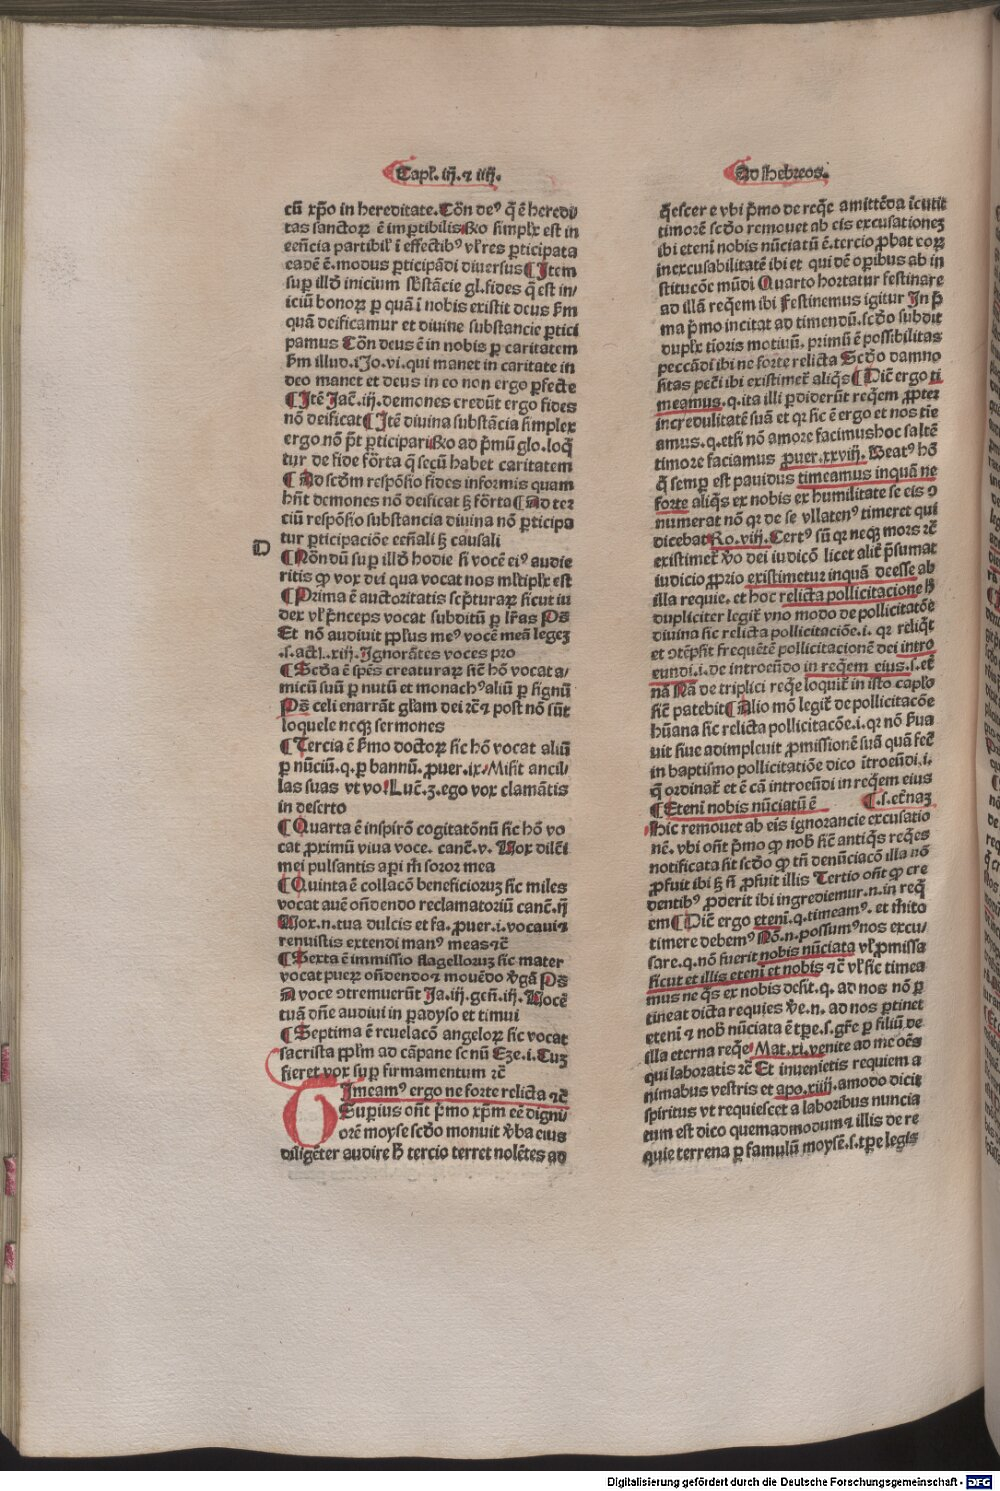 Capl'. iij. ⁊ iiij.
cū xp̄o in hereditate. Cōn deꝰ q̄ ē heredi
tas sanctoꝝ ē imꝑtibilis Rō simplx est in
eēncia partibil' ī effectibꝰ vl' res ꝑticipata
eadē ē. modus ꝑticipādi diuersus ¶ Item
suꝑ illd̄ inicium sb̄stācie gl. fides q̄ est in/
iciū bonoꝝ ꝑ quā ī nobis existit deus ẜm
quā deificamur et diuine substancie ꝑtici
pamus Cōn deus ē in nobis ꝑ caritatem
ẜm illud. i Jo. vi. qui manet in caritate in
deo manet et deus in eo non ergo ꝑfecte
¶ Itē Jac̄. iij. demones credūt ergo fides
nō deificat ¶ Itē diuina substācia simplex
ergo nō p̄t ꝑticipari Rō ad p̄mū glo. loq̄
tur de fide fōrta q̄ secū habet caritatem
¶ Ad scd̄m respōsio fides informis quam
hn̄t demones nō deificat ꝫ fōrta ¶ Ad ter
ciū respōsio substancia diuina nō ꝑticipa
tur ꝑticipaciōe eēn̄ali ꝫ causali
D
¶ Nōndū suꝑ illd̄ hodie si vocē eiꝰ audie
ritis ꝙ vox dei qua vocat nos ml'tiplx est
¶ Prima ē auctoritatis sc̄pturaꝝ sicut iu
dex vl' p̄nceps vocat subditū ꝑ lr̄as Ps̄
Et nō audiuit pp̄lus meꝰ vocē meā legeꝫ
.s. act. xiij. Ignorātes voces pro
¶ Scd̄a ē spēs creaturaꝝ sic̄ hō vocat a/
micū suū ꝑ nutū et monachꝰ aliū ꝑ signū
Ps̄ celi enarrāt gl'am dei ⁊c̄ ⁊ post nō sūt
loquele neqꝫ sermones
¶ Tercia ē ẜmo doctoꝝ sic hō vocat aliū
ꝑ nūciū. q. ꝑ bannū. ꝓuer. ix. Misit ancil/
las suas vt vo Luc̄. 3. ego vox clamātis
in deserto
¶ Quarta ē inspirō cogitatōnū sic hō vo
cat ꝓximū viua voce. canc̄. v. Vox dilc̄i
mei pulsantis aꝑi m̄ soror mea
¶ Quinta ē collacō beneficioruꝫ sic miles
vocat auē on̄dendo reclamatoriū canc̄. ij
Vox. n. tua dulcis et fa. ꝓuer. i. vocaui ⁊
renuistis extendi manꝰ meas ⁊c̄
¶ Sexta ē immissio flagelloruꝫ sic mater
vocat pueꝝ on̄dendo ⁊ mouēdo v̄gā Ps̄
A voce ɔtremuerūt Ja. iij. gen̄. iij. Vocē
tuā dn̄e audiui in ꝑadyso et timui
¶ Septima ē reuelacō angeloꝝ sic vocat
sacrista pp̄lm ad cāpane sonū Eze. i. Cuꝫ
fieret vox suꝑ firmamentum ⁊c̄
Timeamꝰ ergo ne forte relicta ⁊c̄
Suꝑius on̄t p̄mo xp̄m eē digni
orē moyse scd̄o monuit v̄ba eius
diligēter audire hꝰ tercio terret nolētes ad
Ad Hebreos.
q̄escere vbi p̄mo de reqͥe amittēda īcutit
timorē scd̄o remouet ab eis excusationeꝫ
ibi eteni nobis nūciatū ē. tercio ꝓbat eoꝝ
inexcusabilitatē ibi et qui dē oꝑibus ab in
stitucōe mūdi Quarto hortatur festinare
ad illā reqͥem ibi Festinemus igitur In p̄
ma p̄mo incitat ad timendū. scd̄o subdit
duplx tioris motiuū, primū ē possibilitas
peccādi ibi ne forte relicta Scd̄o damno
sitas pec̄i ibi existimet' aliqͥs ¶ Dic̄ ergo ti
meamus. q. ita illi ꝑdiderūt reqͥem ꝓpter
incredulitatē suā et qꝛ sic ē ergo et nos tīe
amus. q. etsi nō amore facimus hoc saltē
timore faciamus ꝓuer. xxviij. Beatꝰ hō
q̄ semꝑ est pauidus timeamus inquā ne
forte aliqͥs ex nobis ex humilitate se eis ɔ
numerat nō qꝛ de se vllatenꝰ timeret qui
dicebat Ro. viij. Certꝰ sū qꝛ neqꝫ mors ⁊c̄
existimet' v̄o dei iudicō licet alit' p̄sumat
iudicio ꝓprio existimetur inquā deesse ab
illa requie. et hoc relicta pollicitacione hꝰ
dupliciter legit' vno modo de pollicitatōe
diuina sic relicta pollicitaciōe. i. qꝛ reliqͥt
et ɔtēpsit frequētē pollicitacionē dei intro
eundi. i. de introeūdo in reqͥem eius. s. et'
nā Nā de triplici reqͥe loquit' in isto caplo
sic̄ patebit ¶ Alio mō legit' de pollicitacōe
hūana sic relicta pollicitacōe. i. qꝛ nō ẜua
uit siue adimpleuit ꝓmissionē suā quā fec̄
in baptismo pollicitatiōe dico ītroeūdi. i.
q̄ ordinat' et ē cā introeūdi in reqͥem eius
¶ Eteni nobis nūciatū ē ¶ .s. et'naꝫ
Hic remouet ab eis ignorancie excusatio
nē. vbi on̄t p̄mo ꝙ nob̄ sic̄ antiqͥs reqͥes
notificata sit scd̄o ꝙ tn̄ denūciacō illa nō
ꝓfuit ibi ꝫ sͥ ꝓfuit illis Tertio on̄t ꝙ cre
dentibꝰ ꝓderit ibi ingrediemur. n. in reqͥ
em ¶ Dic̄ ergo eteni. q. timeamꝰ. et m̄ito
timere debemꝰ Nō. n. possumꝰ nos excu/
sare. q. nō fuerit nobis nūciata vl' ꝓmissa
sicut et illis eteni et nobis ⁊c̄ vl' sic timea
mus ne qͥs ex nobis desit. q. ad nos nō ꝑ
tineat dicta requies v̄e. n. ad nos ꝑtinet
eteni ⁊ nob̄ nūciata ē tꝑe. s. gr̄e ꝑ filiū de
illa eterna reqͥe Mat. xi. venite ad me oēs
qui laboratis ⁊c̄ Et inuenietis requiem a
nimabus vestris et apo. xiiij. amodo dicit
spiritus vt requiescet a laboribus nuncia
tum est dico quemadmodum ⁊ illis de re
quie terrena ꝑ famulū moysē. s. tꝑe legis
Digitalisierung gefördert durch die Deutsche Forschungsgemeinschaft - DFG